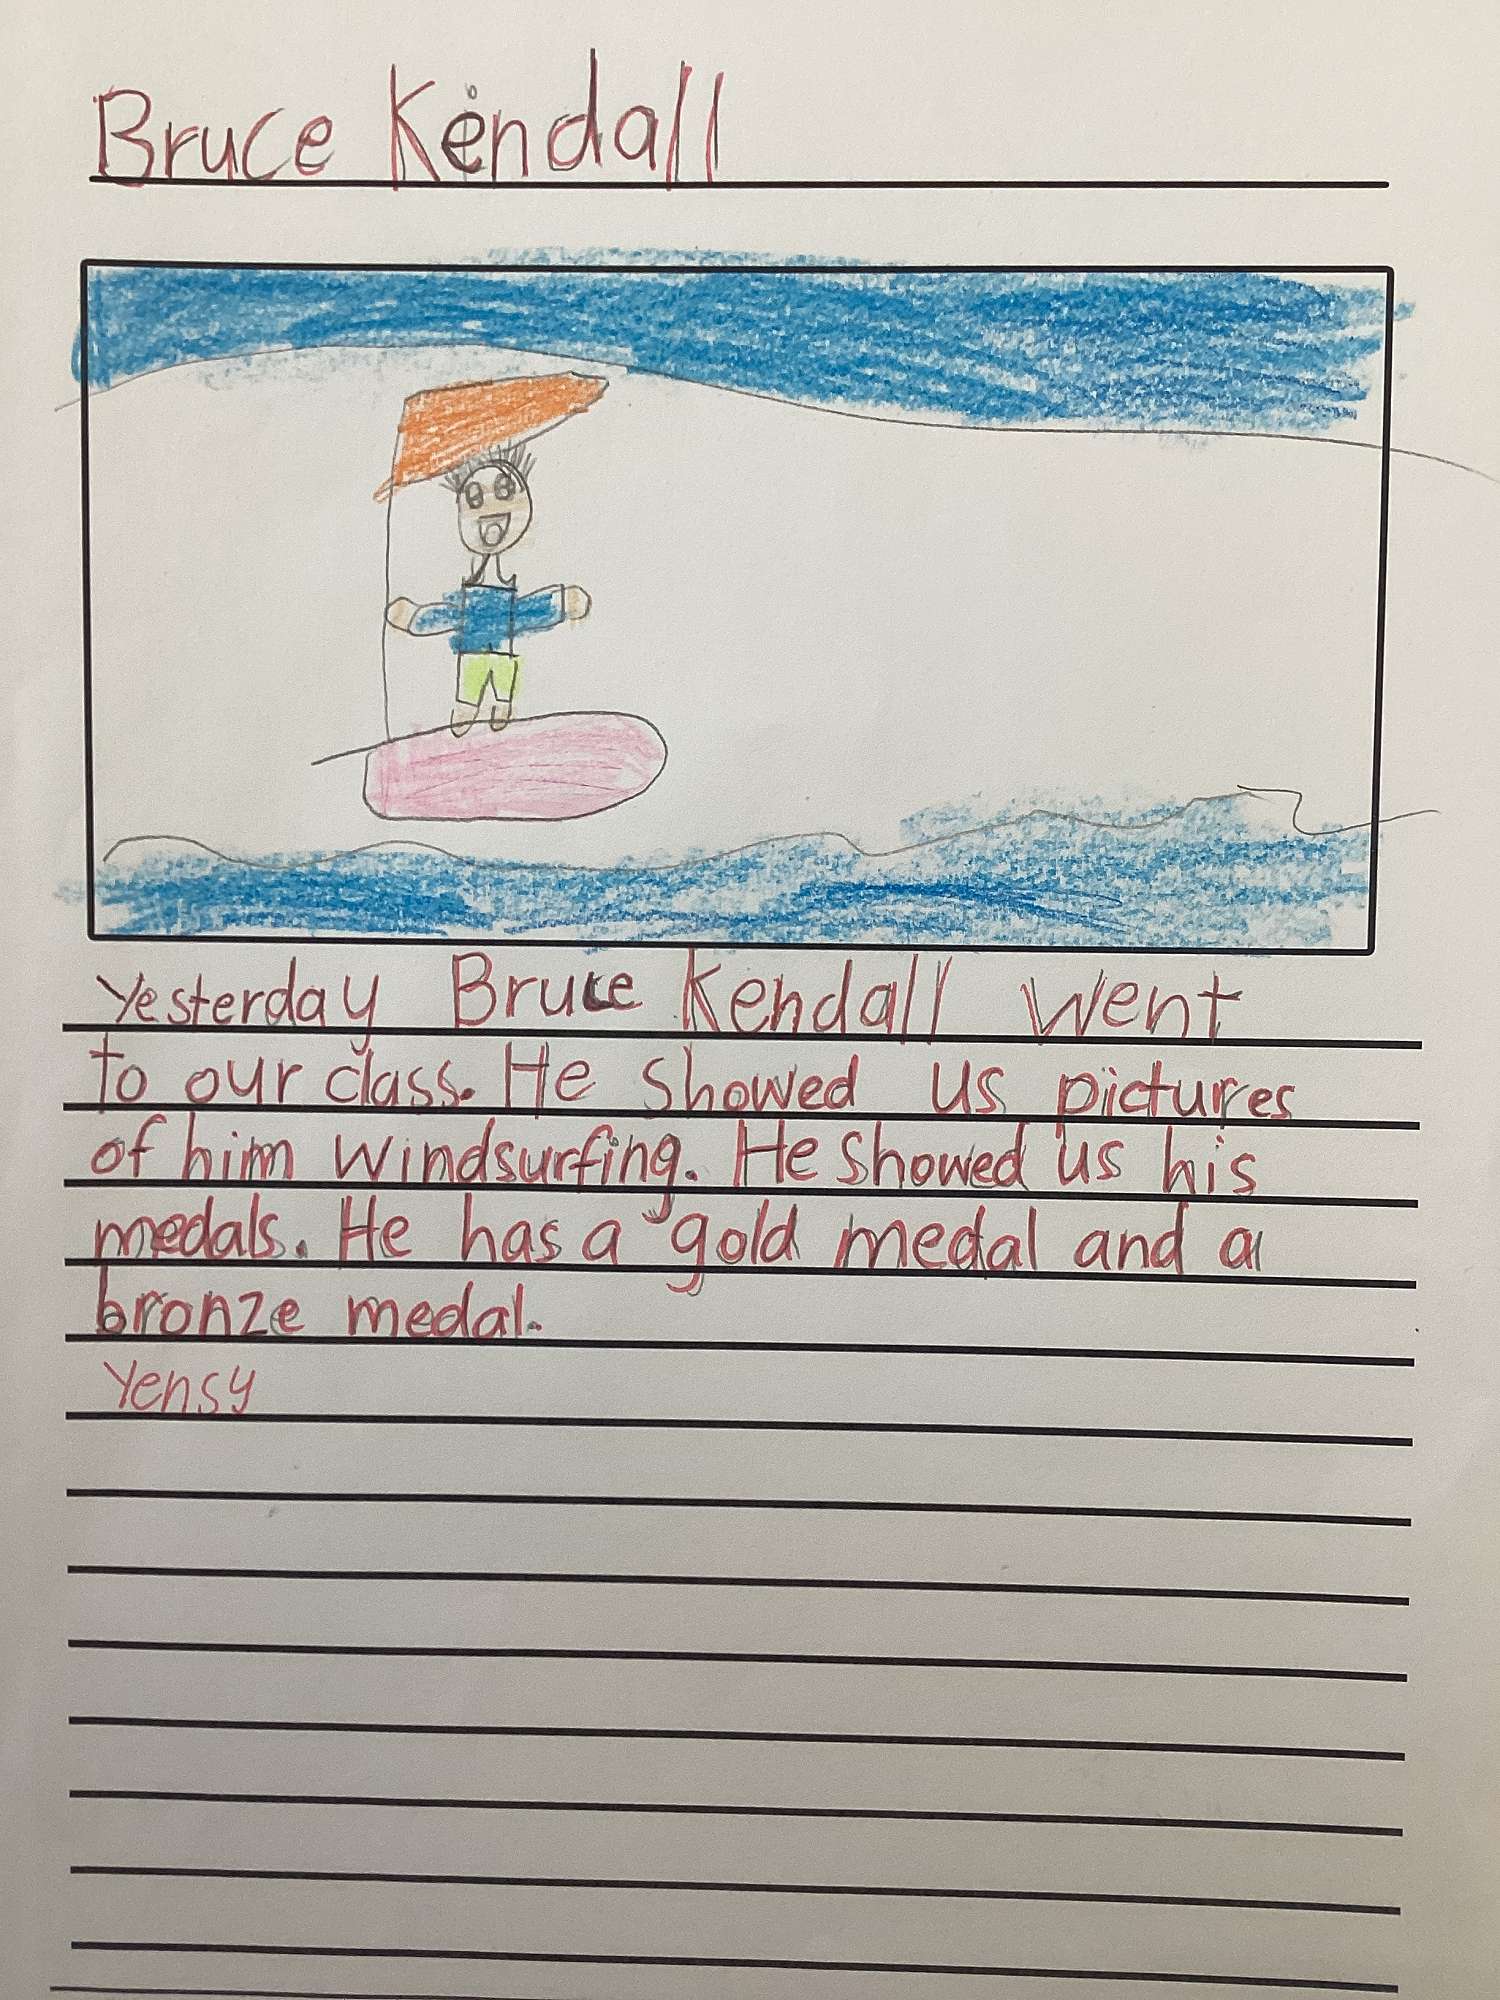 Bruce Kendall
Yesterday Bruce Kendall went
to our class. He showed us pictures
of him windsurfing. He showed us his
medals. He has a gold medal and a
bronze medal.
Yensy